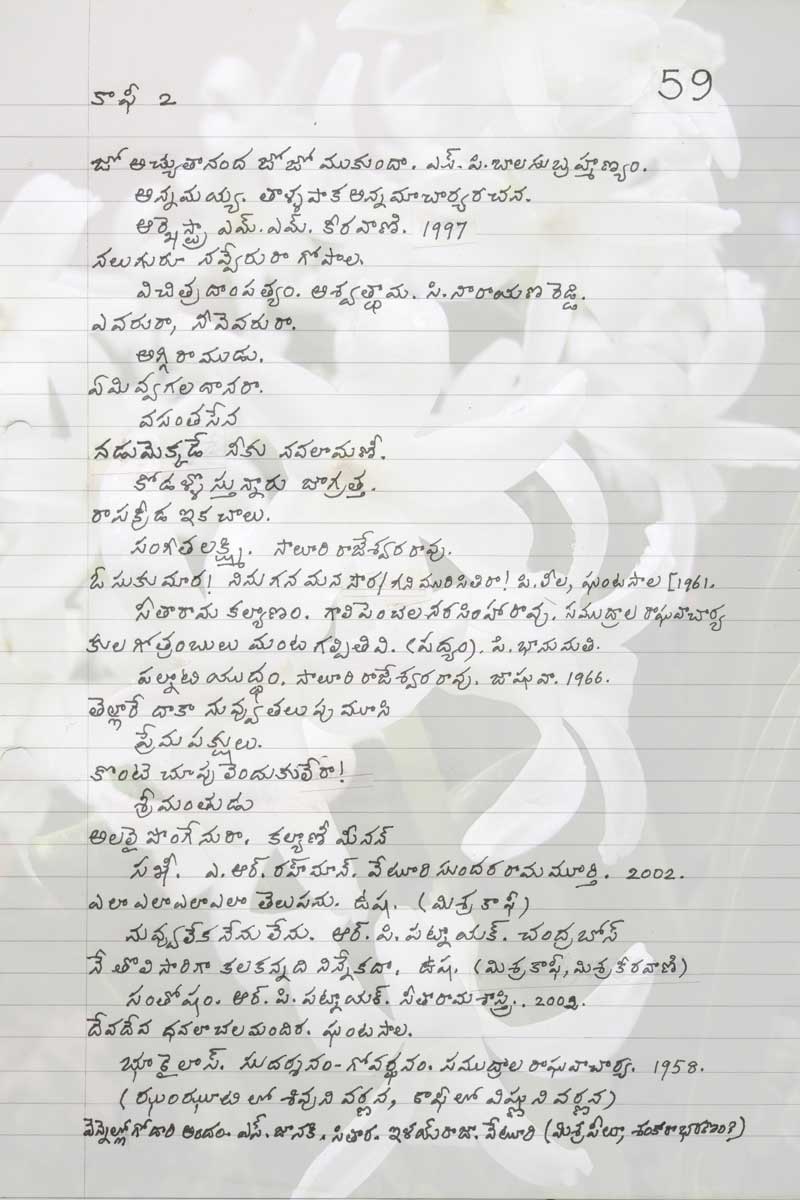 కాఫీ 2
59
జో అచ్యుతానంద జోజో ముకుందా. ఎస్. పి. బాలసుబ్రహ్మణ్యం.
అన్నమయ్య. తాళ్ళపాక అన్నమాచార్య రచన.
ఆర్కెస్ట్రా ఎమ్. ఎమ్. కీరవాణి. 1997
నలుగురూ నవ్వేరురా గోపాల.
విచిత్ర దాంపత్యం. అశ్వత్థామ. సి. నారాయణ రెడ్డి.
ఎవరురా, నీవెవరురా.
అగ్గిరాముడు.
ఏమివ్వగలదానరా.
వసంతసేన
నడుమెక్కడే నీకు నవలామణీ.
కోడళ్ళొస్తున్నారు జాగ్రత్త.
రాసక్రీడ ఇక చాలు.
సంగీత లక్ష్మి. సాలూరి రాజేశ్వరరావు.
ఓ సుకుమార! నినుగన మనసార/గని మురిసితిరా! పి. లీల, ఘంటసాల [1961.
సీతారామ కల్యాణం. గాలిపెంచల నరసింహారావు. సముద్రాల రాఘవాచార్య
కులగోత్రంబులు మంటగల్పితివి. (పద్యం). పి. భానుమతి.
పల్నాటి యుద్ధం. సాలూరి రాజేశ్వరరావు. జాషువా. 1966.
తెల్లారే దాకా నువ్వు తలుపు మూసి
ప్రేమ పక్షులు.
కొంటె చూపులెందుకులేరా!
శ్రీమంతుడు
అలలై పొంగేనురా. కల్యాణీ మీనన్
సఖి. ఎ. ఆర్. రహ్మాన్. వేటూరి సుందరరామమూర్తి. 2002.
ఎలా ఎలా ఎలా ఎలా తెలుపను. ఉష. (మిశ్ర కాఫీ)
నువ్వు లేక నేను లేను. ఆర్. పి. పట్నాయక్. చంద్రబోస్
నే తొలిసారిగా కలకన్నది నిన్నేకదా. ఉష. (మిశ్రకాఫీ, మిశ్ర కీరవాణి)
సంతోషం. ఆర్. పి. పట్నాయక్. సీతారామశాస్త్రి. 2002.
దేవదేవ ధవలాచలమందిర. ఘంటసాల.
భూకైలాస్. సుదర్శనం-గోవర్ధనం. సముద్రాల రాఘవాచార్య. 1958.
(ఝంఝూటిలో శివుని వర్ణన, కాఫీలో విష్ణుని వర్ణన)
వెన్నెల్లో గోదారి అందం. ఎస్. జానకి. సితార. ఇళయ్‌రాజా. వేటూరి (మిశ్ర పీలూ, శంకరాభరణం?)